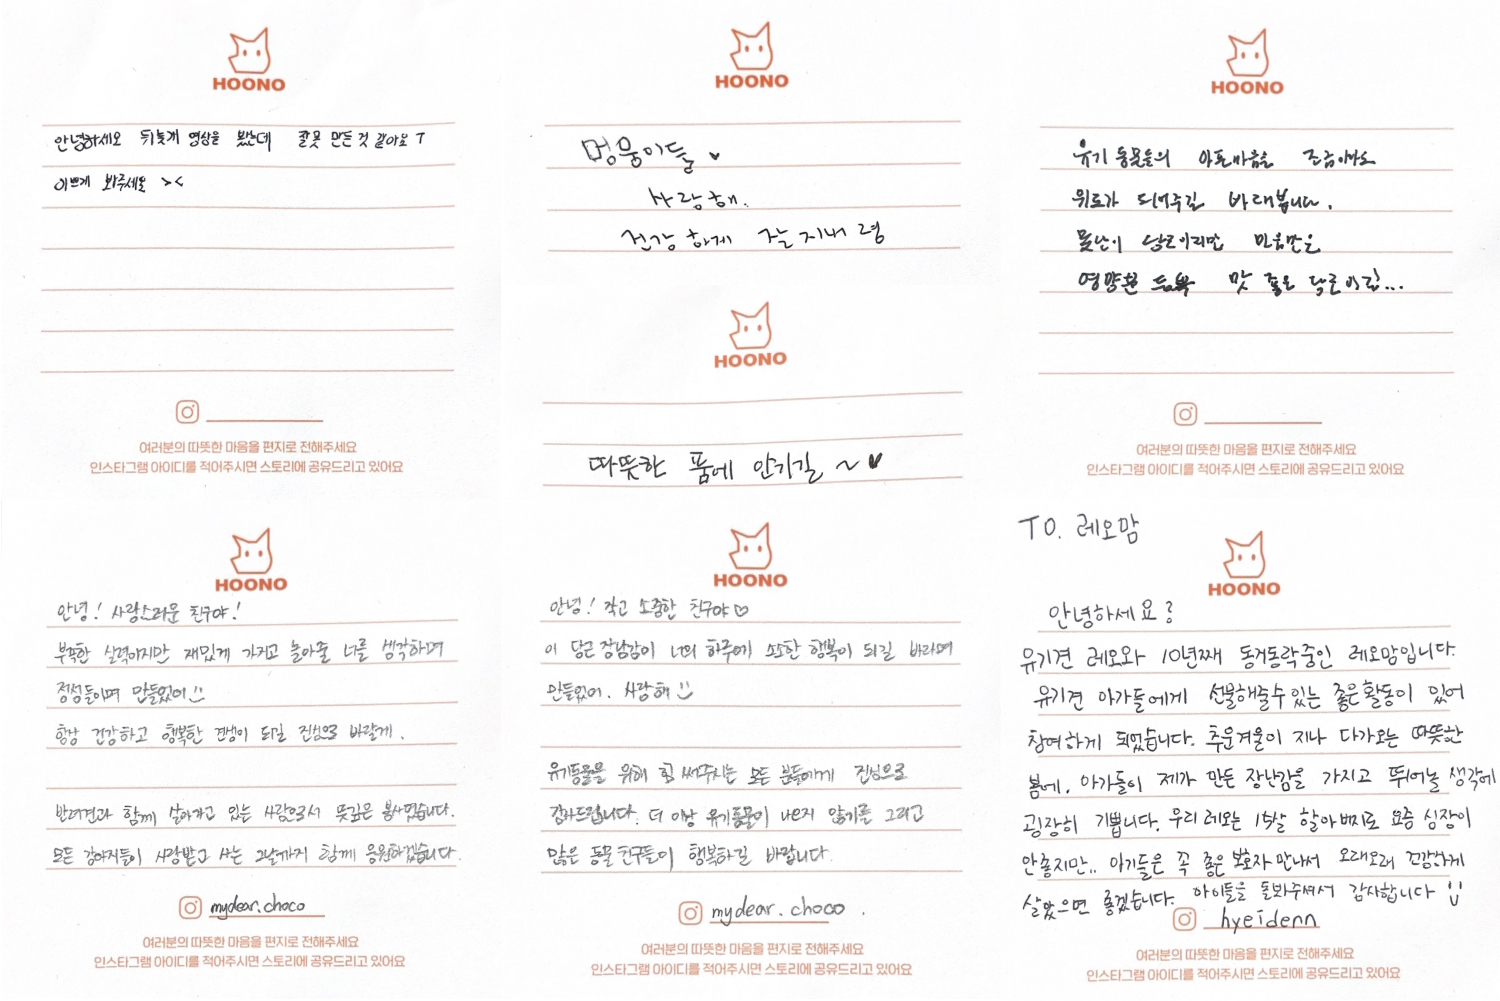 HOONO
안녕하세요 뒤늦게 영상을 봤는데 잘못 만든 것 같아요 T
이쁘게 봐주세요 ><
여러분의 따뜻한 마음을 편지로 전해주세요
인스타그램 아이디를 적어주시면 스토리에 공유드리고 있어요
HOONO
멍뭉이들 ♥
사랑해.
건강하게 잘 지내 렴
HOONO
따뜻한 품에 안기길 ~ ♥
HOONO
유기 동물들의 아픈마음을 조금이라도
위로가 되어주길 바래봅니다.
못난이 당근이지만 마음만은
영양분 듬뿍 맛 좋은 당근이길...
여러분의 따뜻한 마음을 편지로 전해주세요
인스타그램 아이디를 적어주시면 스토리에 공유드리고 있어요
HOONO
안녕! 사랑스러운 친구야!
부족한 실력이지만 재밌게 가지고 놀아줄 너를 생각하며
정성들이며 만들었어
항상 건강하고 행복한 견생이 되길 진심으로 바랄게.
반려견과 함께 살아가고 있는 사람으로서 뜻깊은 봉사였습니다.
모든 강아지들이 사랑받고 사는 그날까지 함께 응원하겠습니다.
mydear.choco
여러분의 따뜻한 마음을 편지로 전해주세요
인스타그램 아이디를 적어주시면 스토리에 공유드리고 있어요
HOONO
안녕! 작고 소중한 친구야♡
이 당근 장난감이 너의 하루에 소소한 행복이 되길 바라며
만들었어. 사랑해
유기동물을 위해 힘 써주시는 모든 분들에게 진심으로
감사드립니다. 더 이상 유기동물이 나오지 않기를 그리고
많은 동물 친구들이 행복하길 바랍니다.
mydear.choco
여러분의 따뜻한 마음을 편지로 전해주세요
인스타그램 아이디를 적어주시면 스토리에 공유드리고 있어요
TO. 레오맘
HOONO
안녕하세요?
유기견 레오와 10년째 동거동락중인 레오맘입니다.
유기견 아가들에게 선물해줄수있는 좋은활동이 있어
참여하게 되었습니다. 추운겨울이 지나 다가오는 따뜻한
봄에, 아가들이 제가 만든 장난감을 가지고 뛰어놀 생각에
굉장히 기쁩니다. 우리 레오는 15살 할아버지로 요즘 심장이
안좋지만.. 아기들은 꼭 좋은 보호자 만나서 오래오래 건강하게
살았으면 좋겠습니다. 아이들을 돌봐주셔서 감사합니다
hyeidenn
여러분의 따뜻한 마음을 편지로 전해주세요
인스타그램 아이디를 적어주시면 스토리에 공유드리고 있어요